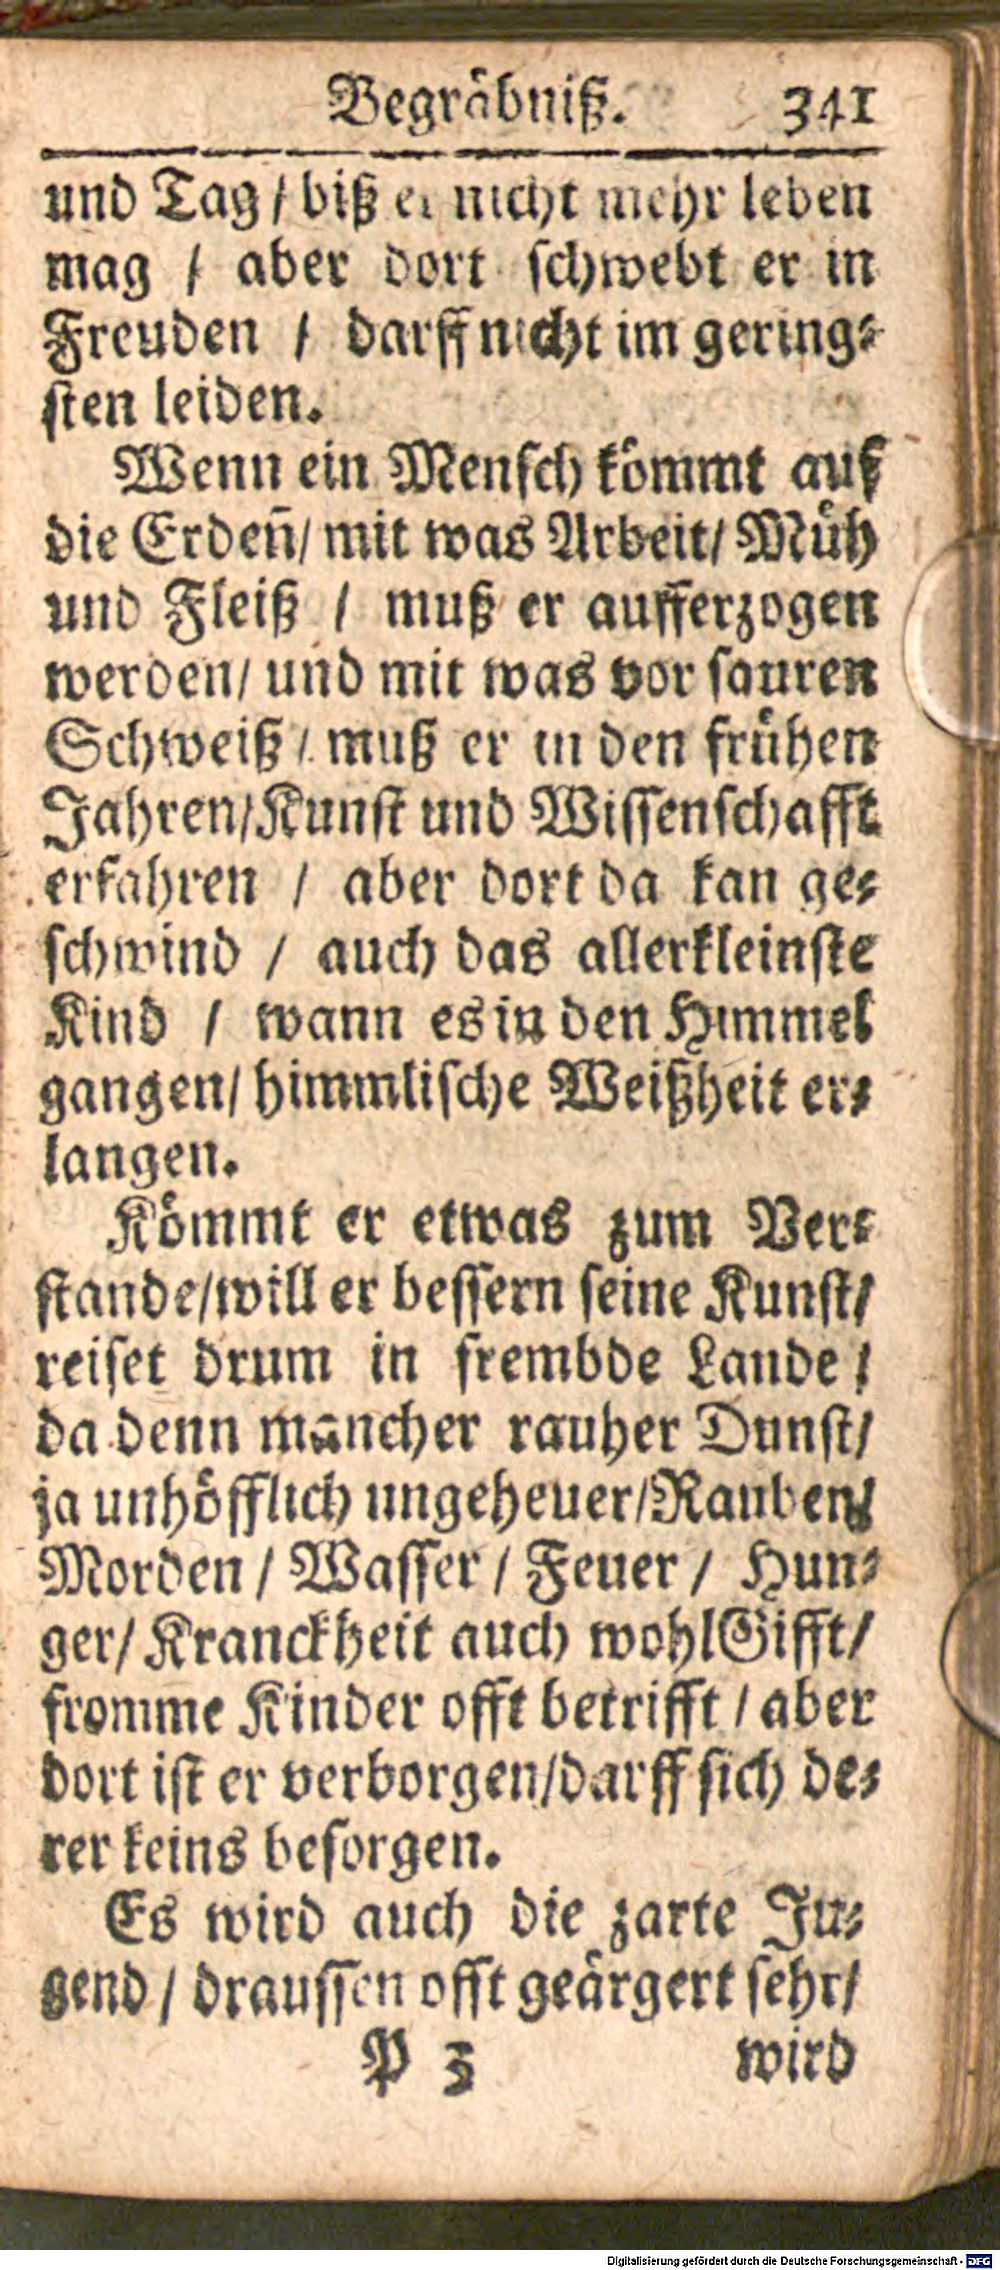 Begräbniß. 341
und Tag / biß er nicht mehr leben
mag / aber dort schwebt er in
Freuden / darff nicht im gering⸗
sten leiden.
Wenn ein Mensch kömmt auf
die Erdeñ / mit was Arbeit / Müh
und Fleiß / muß er aufferzogen
werden / und mit was vor sauren
Schweiß / muß er in den frühen
Jahren / Kunst und Wissenschafft
erfahren / aber dort da kan ge⸗
schwind / auch das allerkleinste
Kind / wann es in den Himmel
gangen / himmlische Weißheit er⸗
langen.
Kömmt er etwas zum Ver⸗
stande / will er bessern seine Kunst /
reiset drum in frembde Lande /
da denn mancher rauher Dunst /
ja unhöfflich ungeheuer / Rauben /
Morden / Wasser / Feuer / Hun⸗
ger / Kranckheit auch wohl Gifft /
fromme Kinder offt betrifft / aber
dort ist er verborgen / darff sich de⸗
rer keins besorgen.
Es wird auch die zarte Ju⸗
gend / draussen offt geärgert sehr /
P 3 wird
Digitalisierung gefördert durch die Deutsche Forschungsgemeinschaft - DFG